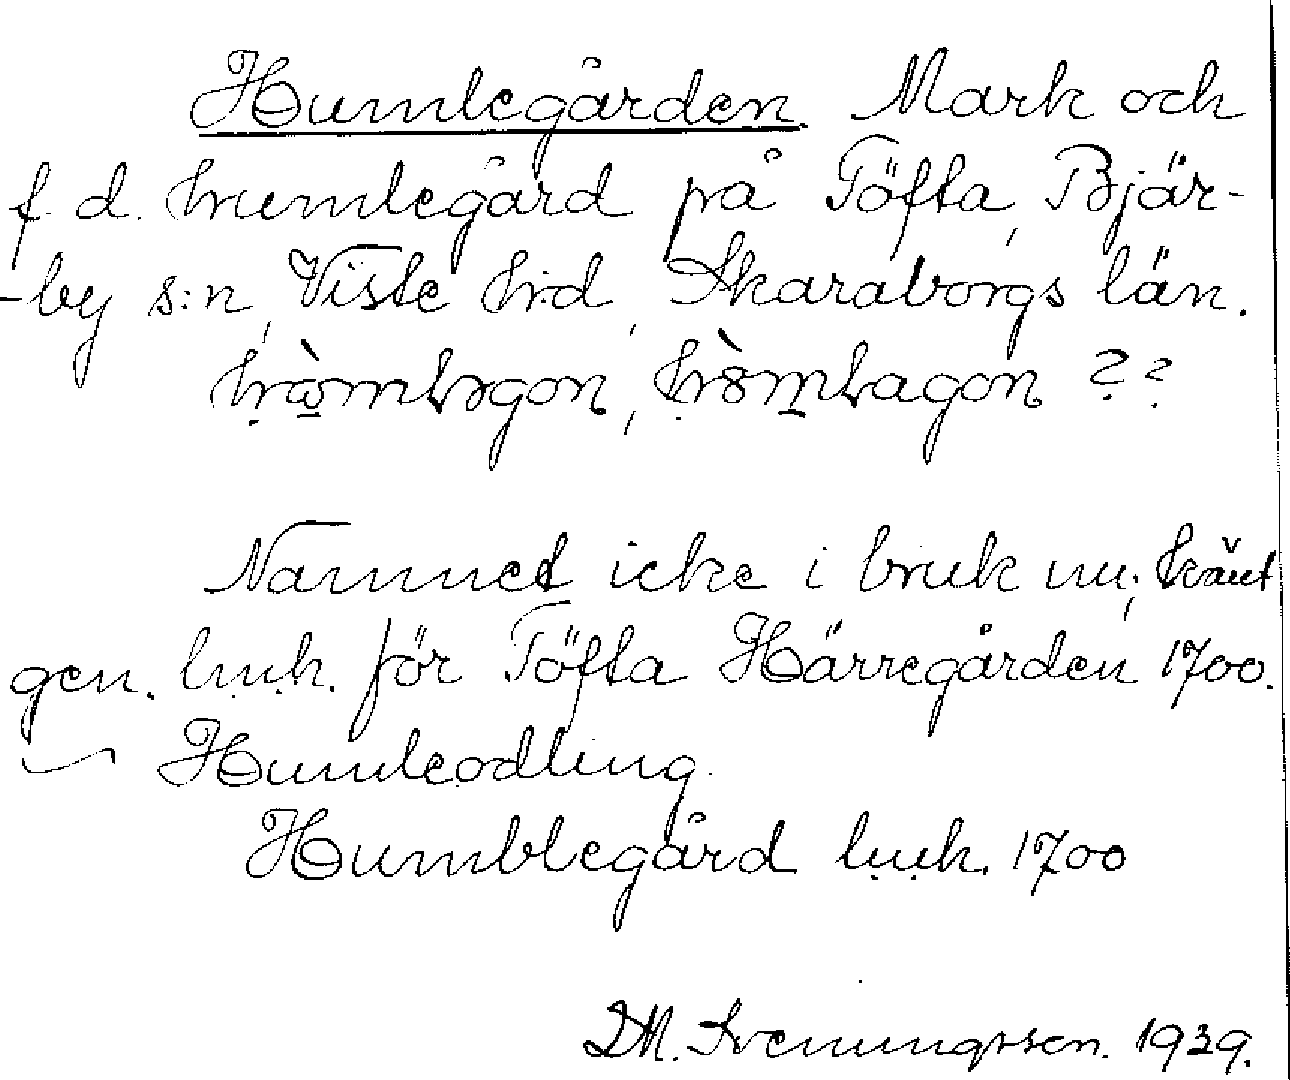 Humlegården. Mark och
f. d. humlegård på Töfta, Bjär-
-by s:n, Viste hrd, Skaraborgs län.
??
Namnet icke i bruk nu; känt
gen. l.u.k. för Töfta Härregården 1700.
Humleodling.
Humblegård l.u.k. 1700
D.M. Svenungssen. 1939.